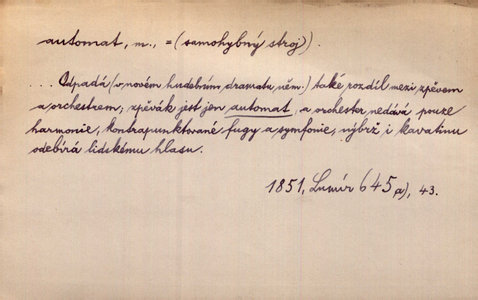 automat, m., = (samohybný stroj).
... Odpadá (v novém hudebním dramatu něm.) také rozdíl mezi zpěvem
a orchestrem; zpěvák jest jen automat, a orchester nedává pouze
harmonie, kontrapunktované fugy a symfonie, nýbrž i kavatinu
odebírá lidskému hlasu.
1851, Lumír 645 a), 43.